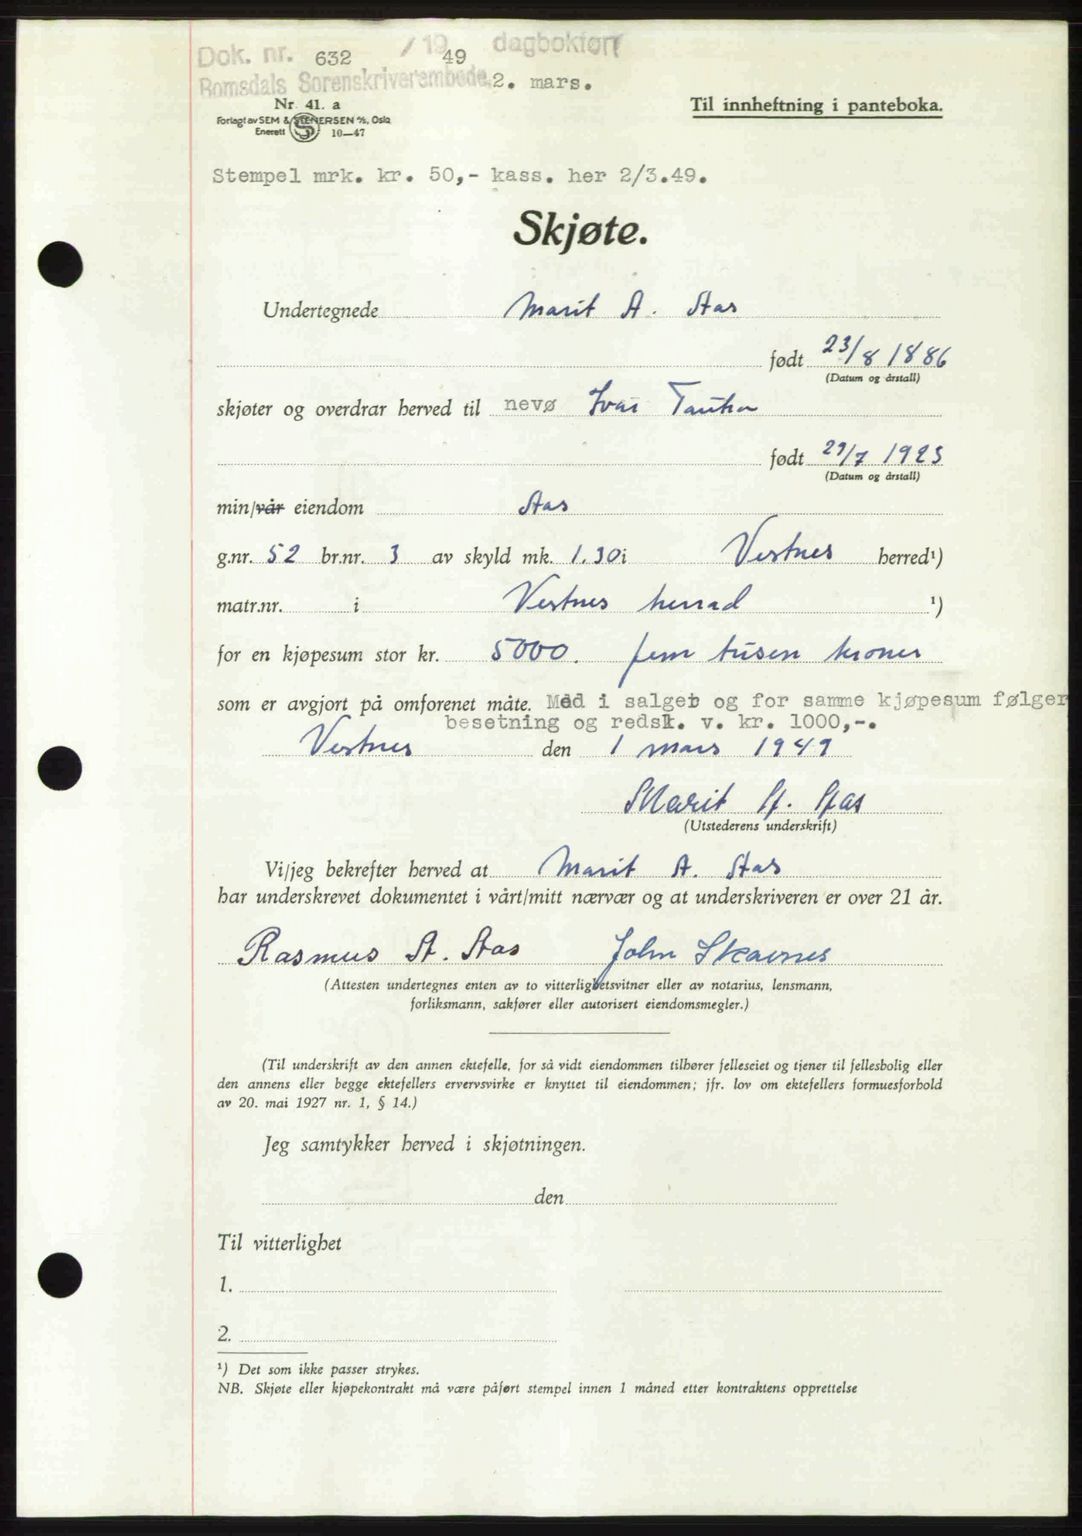 Dok. nr. 632 / 19 49 dagbokført
Romsdals Sorenskriverembede. 2. mars.
Nr. 41. a
Forlagt av SEM & STENERSEN A/S, Oslo
Enerett 10—47
Til innheftning i panteboka.
Stempel mrk. kr. 50,- kass. her 2/3.49.
Skjøte.
Undertegnede Marit A. Aas
født 23/8 1886
(Datum og årstall)
skjøter og overdrar herved til nevø Ivar
født 29/7 1925
(Datum og årstall)
min/vår eiendom Aas
g.nr. 52 br.nr. 3 av skyld mk. 1.30 i Vestnes herred¹)
matr.nr. i Vestnes herrad ¹)
for en kjøpesum stor kr. 5000. fem tusen kroner
som er avgjort på omforenet måte. Med i salget og for samme kjøpesum følger
besetning og redsk. v. kr. 1000,-.
Vestnes den 1 mars 1949
Marit A. Aas
(Utstederens underskrift)
Vi/jeg bekrefter herved at Marit A. Aas
har underskrevet dokumentet i vårt/mitt nærvær og at underskriveren er over 21 år.
Rasmus A. Aas John Skarnes
(Attesten undertegnes enten av to vitterlighetsvitner eller av notarius, lensmann,
forliksmann, sakfører eller autorisert eiendomsmegler.)
(Til underskrift av den annen ektefelle, for så vidt eiendommen tilhører felleseiet og tjener til fellesbolig eller
den annens eller begge ektefellers ervervsvirke er knyttet til eiendommen; jfr. lov om ektefellers formuesforhold
av 20. mai 1927 nr. 1, § 14.)
Jeg samtykker herved i skjøtningen.
den
Til vitterlighet
1.
2.
¹) Det som ikke passer strykes.
NB. Skjøte eller kjøpekontrakt må være påført stempel innen 1 måned etter kontraktens opprettelse